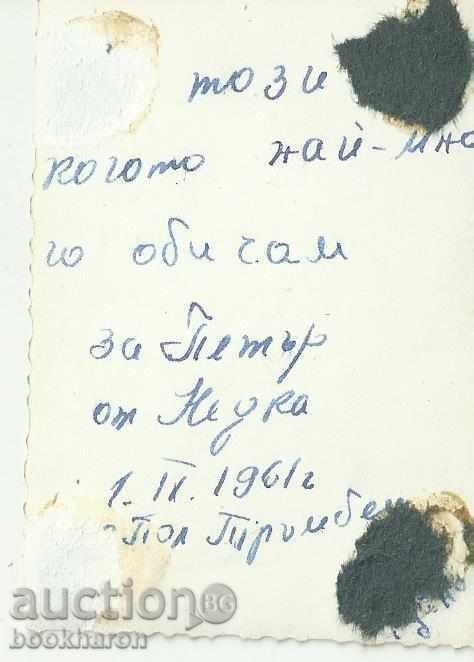 този
когото най-мно
го обичам
за Петър
от Недка
1. II. 1961г
Тръмбеш
auction BG
bookharon